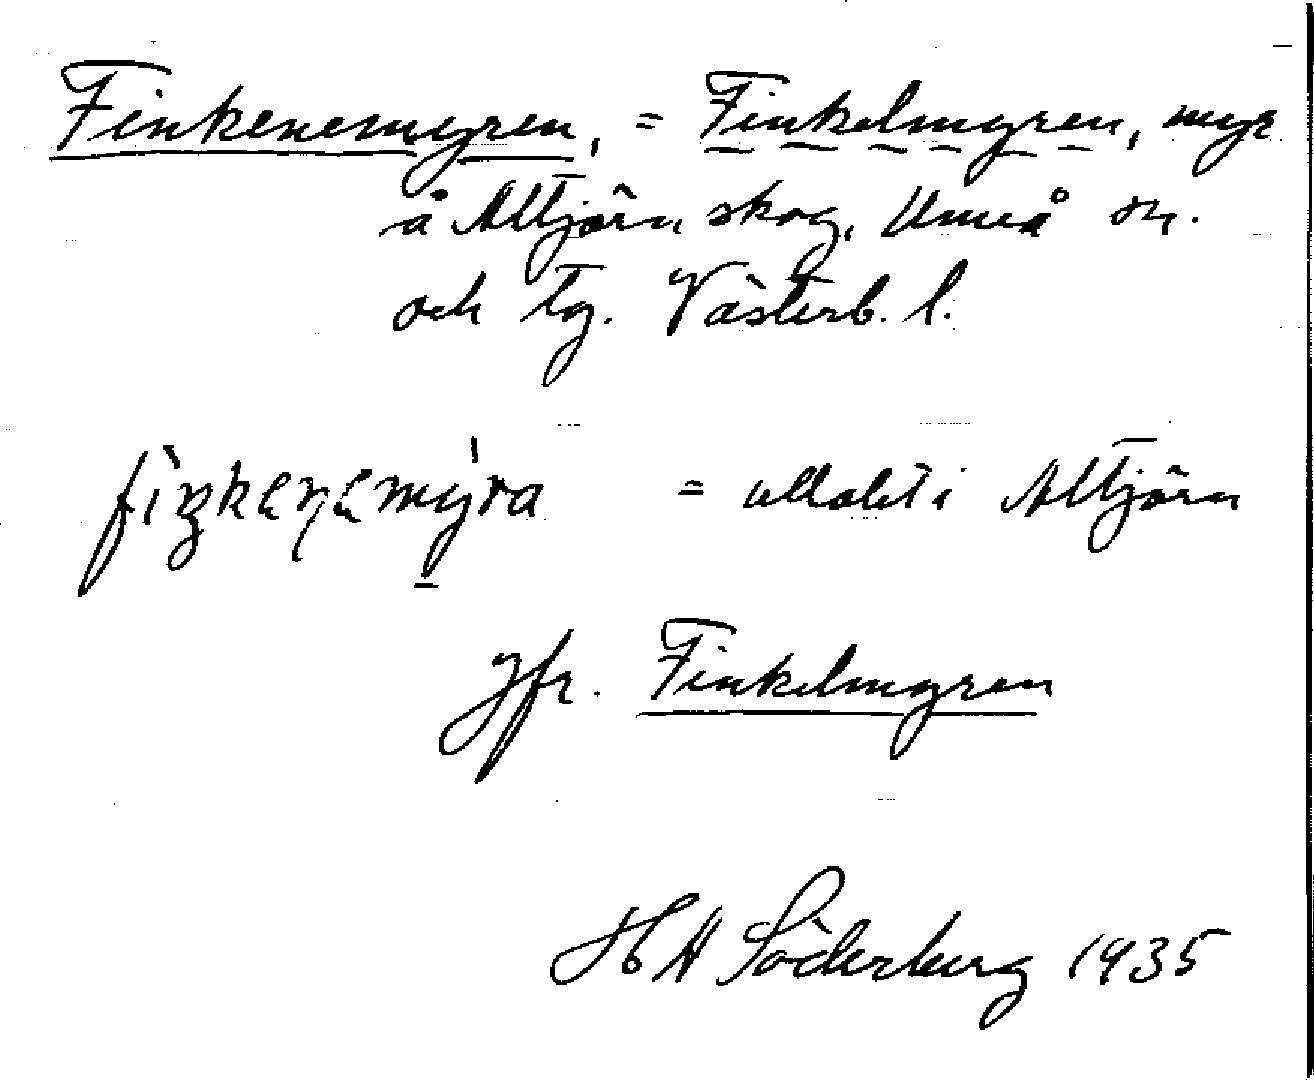 Finkenemyren, = Finkelmyren, myr
å Alltjärn skog, Umeå sn.
och tg. Västerb. l.
= uttalet i Alltjärn
Jfr. Finkelmyren
H A Söderberg 1935